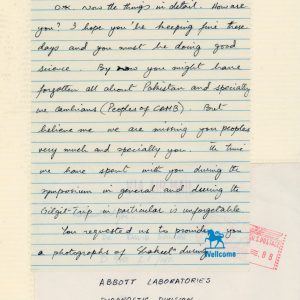 ox. Now the things in detail. How are
you? I hope you'll be keeping fine these
days and you must be doing good
science. By now you might have
forgotten all about Pakistan and specially
we cambians (Peoples of CAMB). But
believe me we are missing you peoples
very much and specially you. The time
we have spent with you during the
symposium in general and during the
Gilgit-Trip in particular is unforgetable
You requested us to provide you
a photographs of "Shaheet" during
Wellcome
ABBOTT LABORATORIES
DIAGNOSTIC DIVISION